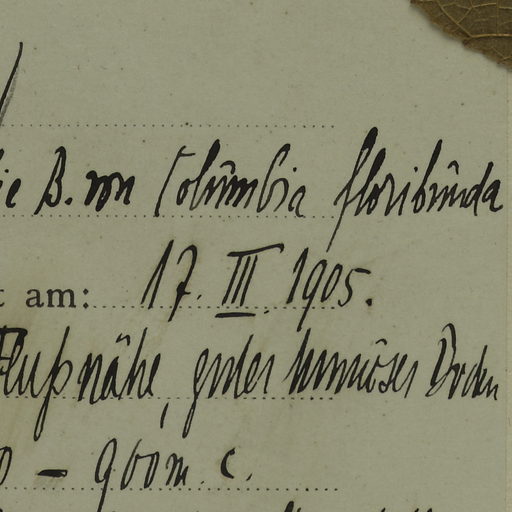 ie B. von Columbia floribunda
t am: 17. III. 1905.
Flußnähe, guter humöser Boden
0 – 900 m. c.